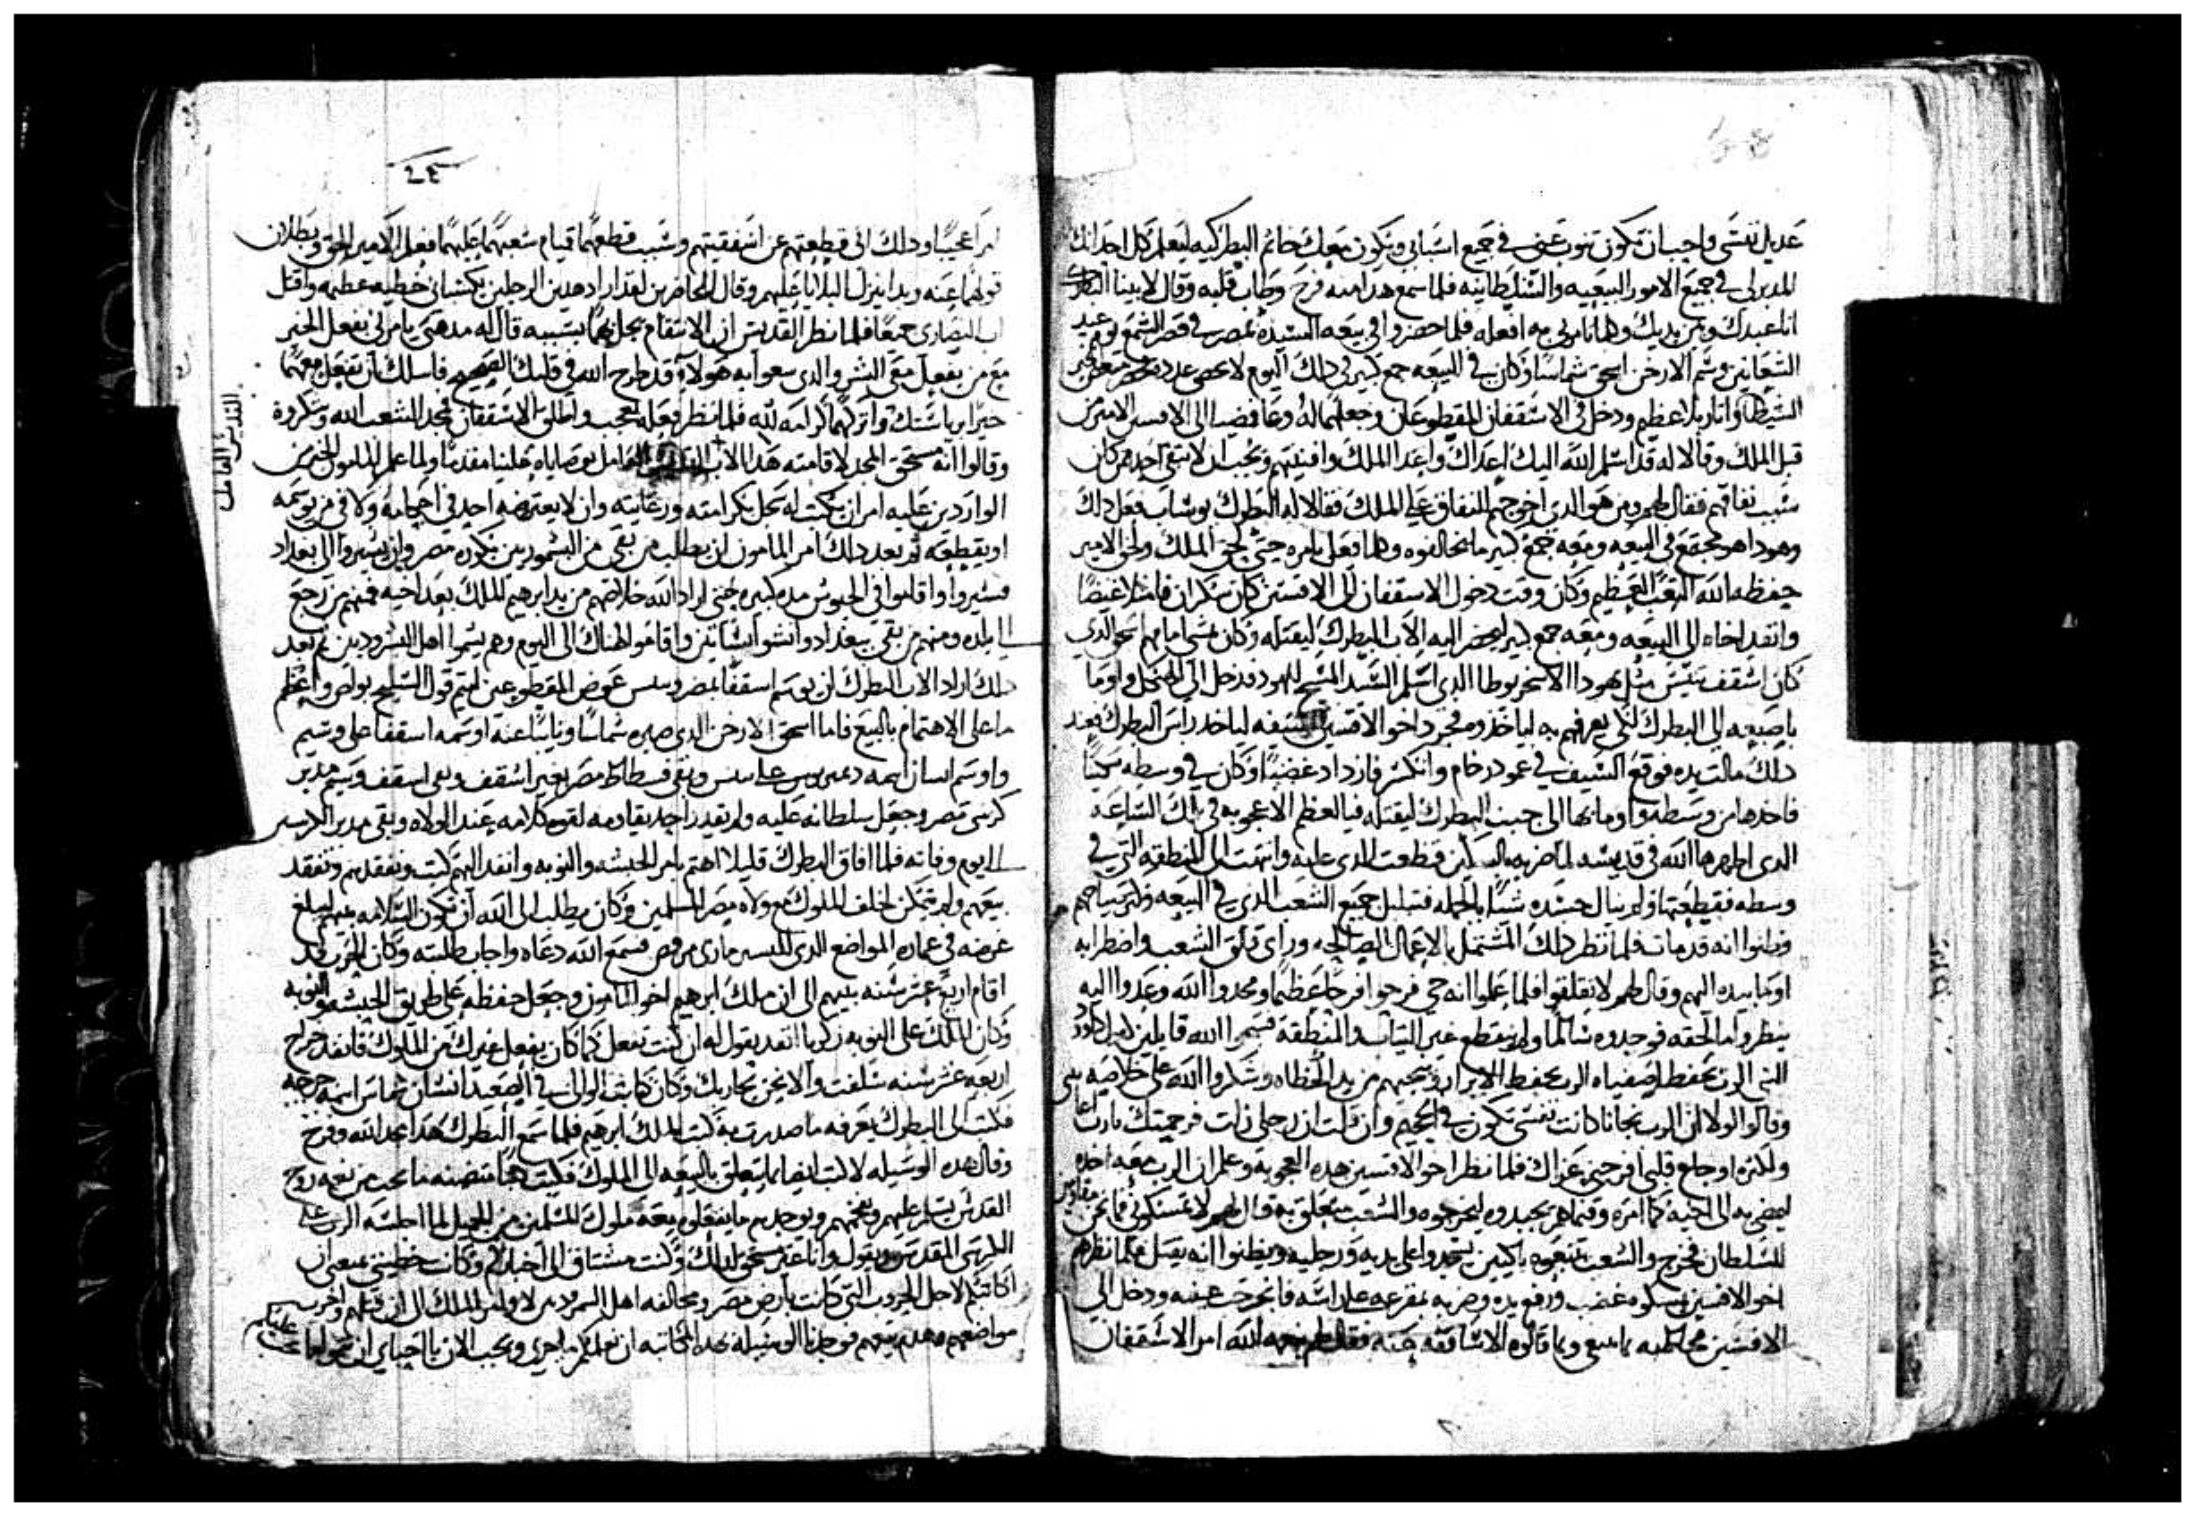 عديل نفسى واحب ان تكون تنوب عنى فى جميع اسبابى ويكون معك خاتم البطركيه ليعلم كل احد انك
المدبر لى فى جميع الامور البيعيه والسلطانيه فلما سمع هدا منه فرح وطاب قلبه وقال لابينا البطرك
انا عبدك وبين يديك ومهما تامرنى به افعله فلما حضروا فى بيعه السيده بمصر فى قصر الشمع يوم عيد
الشعانين وسم الارخن اسحق شماسا وكان فى البيعه جمع كبير فى دلك اليوم لا يحصى عدد
الشيطان واثار بلا عظيم ودخل فى الاسقفان المقطوعان وجعلهما له وعا فمضيا الى الافسين الامير من
قبل الملك وقالا له قد اسلم الله اليك اعداك واعدا الملك وافنيتهم ويجب ان لا تبقى احد ممن كان
سبب نفاقهم فقال لهم ومن هو الدى اخرجهم للنفاق على الملك فقالا له البطرك يوساب فعل دلك
وهودا هو مجتمع فى البيعه ومعه جمع كبير ما يخالفوه وهم افعل بامره حتى لحق الملك ولحق الامير
حفظه الله التعب العظيم وكان وقت دخول الاسقفان الى الافسين كان سكران فامتلا غيضا
وانفد اخاه الى البيعه ومعه جمع كبير ليحضر اليه الاب البطرك ليقتله وكان مشى امامهم اسحق الدى
كان اسقف تنيس مثل يهودا الاسخريوطا الدى اسلم السيد المسيح لليهود فدخل الى الهيكل واوما
باصبعه الى البطرك لكى يعرفهم به لياخدوه فجرد اخو الافسين سيفه لياخد راس البطرك فعند
دلك مالت يده فوقع السيف فى عمود رخام وانكسر فازداد غضبا وكان فى وسطه سكينا
فاخدها من وسطه واوما بها الى جنب البطرك ليقتله فيا لعظم الاعجوبه فى تلك الساعه
الدى اظهرها الله فى قديسه لما ضربه بالسكين قطعت الدى عليه وانتهت الى المنطقه التى فى
وسطه فقطعتها ولم ينال جسده شيئا بالجمله فتبلبل جميع الشعب الدى فى البيعه وكثر صياحهم
وظنوا انه قد مات فلما نظر دلك المشتمل بالاعمال الصالحه وراى قلق الشعب واضطرابه
اوما بيده اليهم وقال لهم لا تقلقوا فلما علموا انه حى فرحوا فرحا عظيما ومجدوا الله وعدوا اليه
ينظروا ما لحقه فوجدوه سالما ولم ينقطع غير الثياب والمنطقه فسبحوا الله قايلين كما قال داوود
النبى الرب يحفظ اصفياه الرب يحفظ الابرار وينجيهم من يد الخطاه وشكروا الله على خلاصه
وقالوا لولا ان الرب نجانا كانت نفسى تكون فى الجحيم وان قلت ان رجلى زلت فرحمتك يارب
ولكثره اوجاع قلبى افرحنى عزاك فلما نظر اخو الافسين هده العجوبه وعلم ان الرب معه اخده
ليمضى به الى اخيه كما امره وفيما هم يجدبوه ليخرجوه والشعب متعلق به قال لهم لا تمسكونى فما نحن مقاومين
للسلطان فخرج والشعب تبعوه باكيين يسجدوا على يديه ورجليه ويظنوا انه يقتل فلما نظرهم
اخو الافسين يمسكوه غضب ورفع يده وضربه بمقرعه على راسه فانجرحت عينه ودخل الى
الافسين مخاطبه بما سمع وبما قالوه الاساقفه عنه فقال لهم الله امر الاسقفان
٢٤
امرا عجيبا ودلك انى قطعتهم عن اسقفيتهم وسبب قطعهما قيام شعبهما عليهما فعلم الامير الحق وبطلان
قولهما عنه وبدا ينزل البلايا عليهم وقال للحاضرين لقد ارادا هدين الرجلين يكسبانى خطيه عظيمه واقتل
اب النصارى جميعا فلما نظر القديس ان الانتقام يحل بهما بسببه قال له مدهبى يامرنى بفعل الخير
مع من يفعل معى الشر والدى سعوا به هولاء قد طرح الله فى قلبك الصحيح فاسلك ان تفعل معهما
خيرا برياستك واتركهما كرامه لله فلما نظر فعله تعجب واطلق الاسقفان فمجد الشعب الله وشكروه
وقالوا انه مستحق المجد لاقامته هدا الاب القديس العامل بوصاياه علينا مقدما ولما علم المامون الخبر من
الواردين عليه امر ان يكتب له سجل بكرامته ورعايته وان لا يعترضه احد فى احكامه ولا فى من يوسمه
او يقطعه ثم بعد دلك امر المامون ان يطلب من بقى من البشمور من كوره مصر وان يسيروا الى بغداد
فسيروا واقاموا فى الحبوس مده كبيره حتى اراد الله خلاصهم من يد ابرهيم الملك بعد اخيه فمنهم من رجع
الى بلده ومنهم من بقى ببغداد وانشوا بساتين واقاموا هناك الى اليوم وهم يسموا اهل البشرودين ثم بعد
دلك اراد الاب البطرك ان يوسم اسقفا بمصر وتنيس عوض المقطوعين ليتم قول السليح بولص واعظم
ما على الاهتمام بالبيع فاما اسحق الارخن الدى صيره شماسا ونايبا عنه اوسمه اسقفا على وسيم
واوسم انسان اسمه دمتريوس على تنيس وبقى فسطاط مصر بغير اسقف وبقى اسقف وسيم مدبر
كرسى مصر وجعل سلطانه عليه ولم يقدر احد يقاومه لقوه كلامه عند الولاه وبقى مدبر الكرسى
الى يوم وفاته فلما افاق البطرك قليلا اهتم بامر الحبشه والنوبه وانفد اليهم كتب وتفقدهم وتفقد
بيعهم ولم يتمكن لخلف الملوك مع ولاه مصر المسلمين وكان يطلب الى الله ان تكون السلامه بينهم ليبلغ
غرضه فى عماره المواضع الدى للقديس مارى مرقص فسمع الله دعاه واجاب طلبته وكان الحرب قد
اقام اربع عشر سنه بينهم الى ان ملك ابرهيم اخو المامون وجعل حفظه على طريق الحبشه والنوبه
وكان الملك على النوبه زكريا انفد يقول له ان كنت تفعل كما كان يفعل غيرك من الملوك فانفد خراج
اربعه عشر سنه سلفت والا نحن نحاربك وكان كاتب الوالى فى الصعيد انسان شماس اسمه جرجه
فكتب الى البطرك يعرفه ما صدرت به كتب الملك ابرهيم فلما سمع البطرك هدا مجد الله وفرح
وقال هده الوسيله لاكتب ايضا بما يتعلق بالبيعه الى الملوك فكتب كتبا متضمنه ما يجب من نعمه روح
القدس يسلم عليهم ويعظمهم ويوجدهم ما يفعلوه معه ملوك المسلمين من الجميل لما اجلسه الرب على
الكرسى المقدس ويقول وانا غير مستحق لدلك وكنت مشتاق الى اخباركم وكانت خطيتى تمنعنى ان
اكاتبكم لاجل الحروب التى كانت بارض مصر ومخالفه اهل البشرودين لاوامر الملك الى ان قتلهم واخرب
مواضعهم وهدم بيعهم فوجدنا الوسيله بهده المكاتبه ان نعلمكم ما جرى ويجب الان يا احباى ان تعملوا ما يجب عليكم
القديس العامل